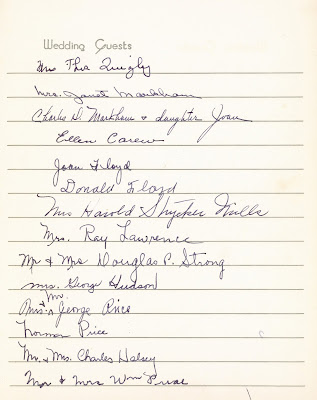 Wedding Guests
Mrs Thea Quigly
Mrs. Janet Markham
Charles D. Markham & daughter Joan
Ellen Carew
Joan Floyd
Donald Floyd
Mrs Harold Stryker Wells
Mrs. Ray Lawrence
Mr & Mrs Douglas P. Strong
Mrs. George Hudson
Mrs. & Mr. George Price
Norman Price
Mr. & Mrs. Charles Halsey
Mr & Mrs Wm